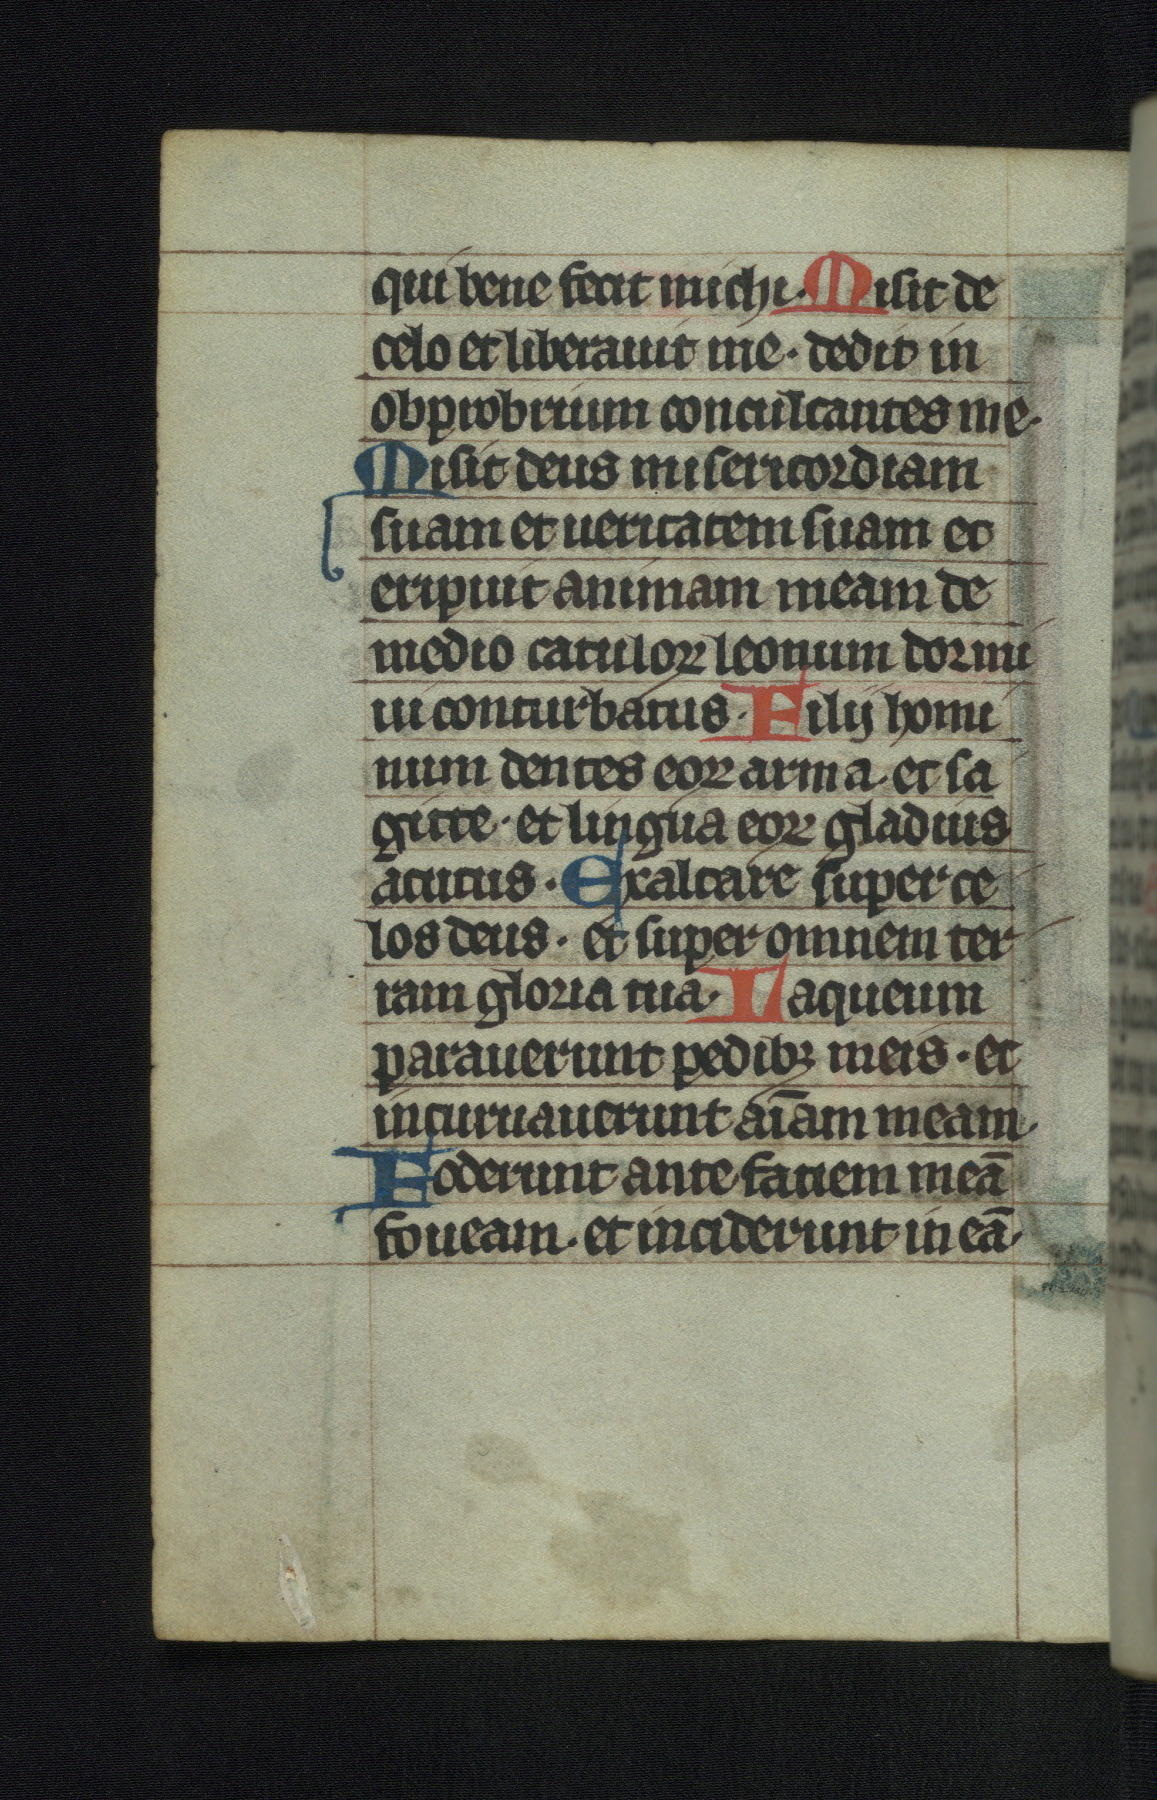 qui bene fecit michi. Misit de
celo et liberauit me. dedit in
obprobrium conculcantes me.
Misit deus misericordiam
suam et ueritatem suam et
eripuit animam meam de
medio catuloꝝ leonum dormi
ui conturbatus. Filij homi
num dentes eoꝝ arma et sa
gitte. et lingua eoꝝ gladius
acutus. Exaltare super ce
los deus. et super omnem ter
ram gloria tua. Laqueum
parauerunt pedibꝫ meis. et
incuruauerunt aīam meam.
Foderunt ante faciem meā
foueam. et inciderunt in eā.